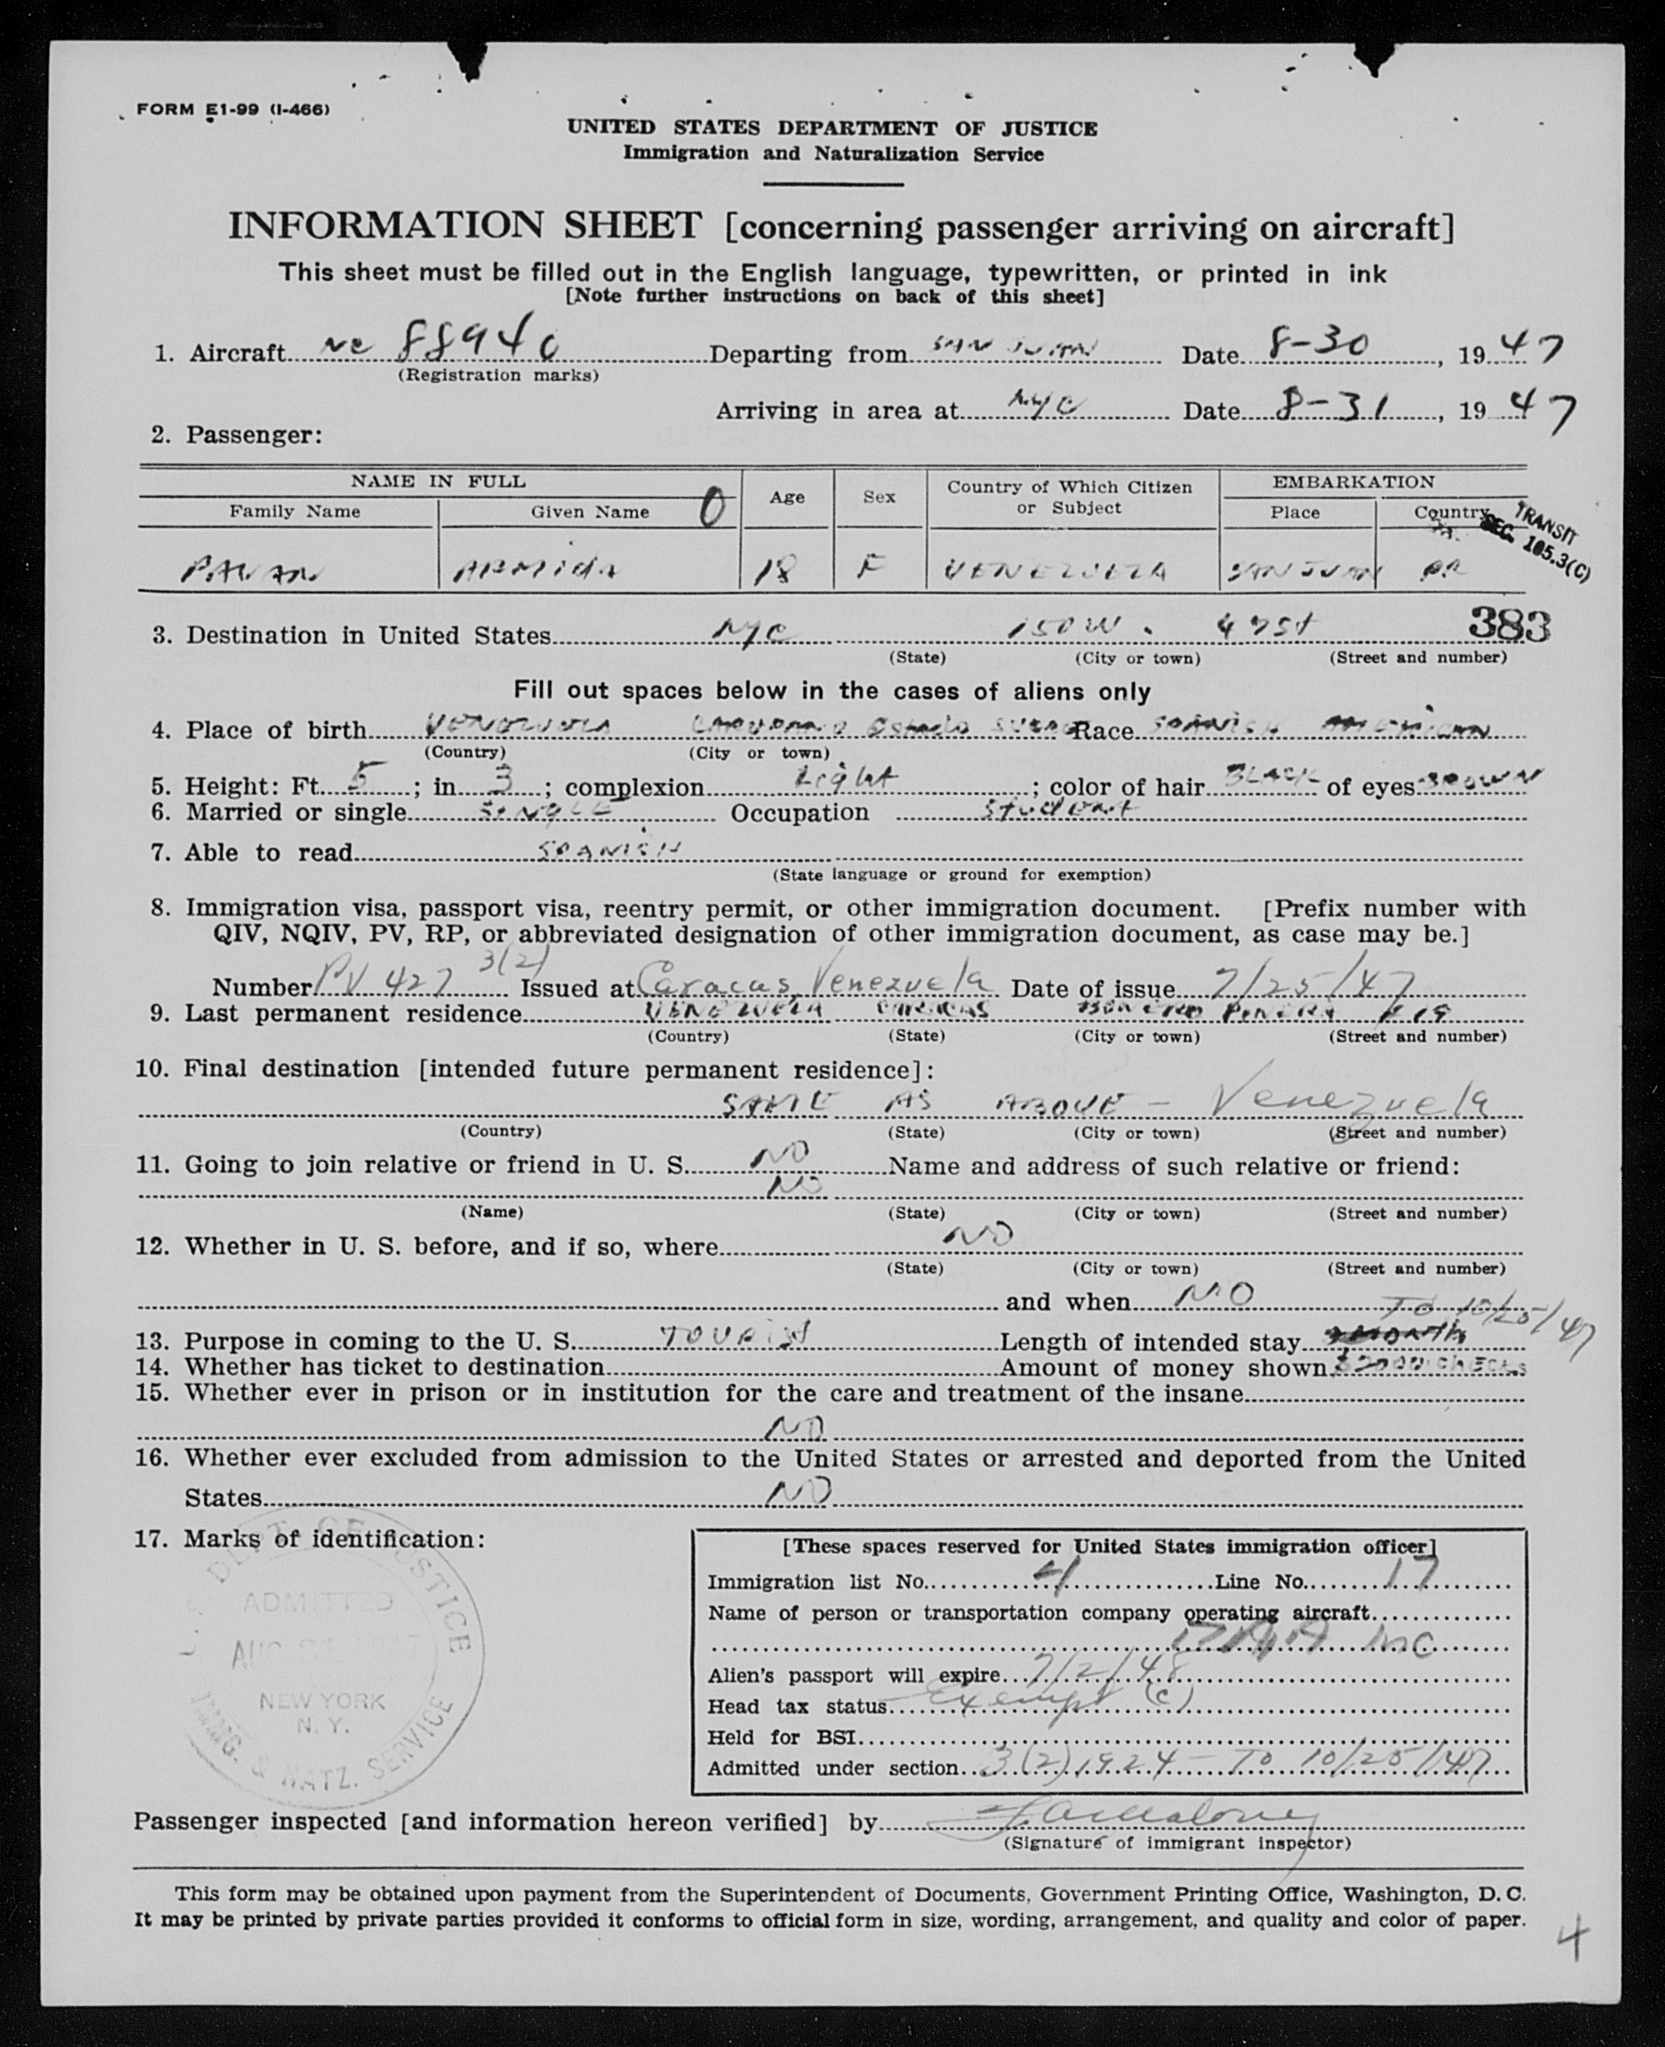 FORM E1-99 (I-466)
UNITED STATES DEPARTMENT OF JUSTICE
Immigration and Naturalization Service
INFORMATION SHEET [concerning passenger arriving on aircraft]
This sheet must be filled out in the English language, typewritten, or printed in ink
[Note further instructions on back of this sheet]
1. Aircraft NC 88940 Departing from SAN JUAN Date 8-30, 1947
(Registration marks)
Arriving in area at NYC Date 8-31, 1947
2. Passenger:
NAME IN FULL Age Sex Country of Which Citizen or Subject EMBARKATION
Family Name Given Name 0 Place Country
TRANSIT
SEC. 105.3(C)
ARMIDA 18 F VENEZUELA SAN JUAN PR
383
3. Destination in United States NYC 150 W. 47 St
(State) (City or town) (Street and number)
Fill out spaces below in the cases of aliens only
4. Place of birth Race SPANISH AMERICAN
(Country) (City or town)
5. Height: Ft. 5; in 3; complexion Light; color of hair BLACK of eyes BROWN
6. Married or single SINGLE Occupation STUDENT
7. Able to read SPANISH
(State language or ground for exemption)
8. Immigration visa, passport visa, reentry permit, or other immigration document. [Prefix number with
QIV, NQIV, PV, RP, or abbreviated designation of other immigration document, as case may be.]
Number PV 427 3(2) Issued at Caracas, Venezuela Date of issue 7/25/47
9. Last permanent residence VENEZUELA CARACAS
(Country) (State) (City or town) (Street and number)
10. Final destination [intended future permanent residence]:
SAME AS ABOVE - Venezuela
(Country) (State) (City or town) (Street and number)
11. Going to join relative or friend in U. S. NO Name and address of such relative or friend:
NO
(Name) (State) (City or town) (Street and number)
12. Whether in U. S. before, and if so, where NO
(State) (City or town) (Street and number)
and when NO
TO 10/25/47
13. Purpose in coming to the U. S. TOURIST Length of intended stay
14. Whether has ticket to destination Amount of money shown CHECKS
15. Whether ever in prison or in institution for the care and treatment of the insane
NO
16. Whether ever excluded from admission to the United States or arrested and deported from the United
States NO
17. Marks of identification:
U.S. DEPT. OF JUSTICE
ADMITTED
AUG 31 1947
NEW YORK
N. Y.
IMMIG. & NATZ. SERVICE
[These spaces reserved for United States immigration officer]
Immigration list No. 4 Line No. 17
Name of person or transportation company operating aircraft
PAA INC
Alien's passport will expire 7/2/48
Head tax status Exempt (c)
Held for BSI
Admitted under section 3(2) 1924 - TO 10/25/47
Passenger inspected [and information hereon verified] by
(Signature of immigrant inspector)
This form may be obtained upon payment from the Superintendent of Documents, Government Printing Office, Washington, D. C.
It may be printed by private parties provided it conforms to official form in size, wording, arrangement, and quality and color of paper.
4